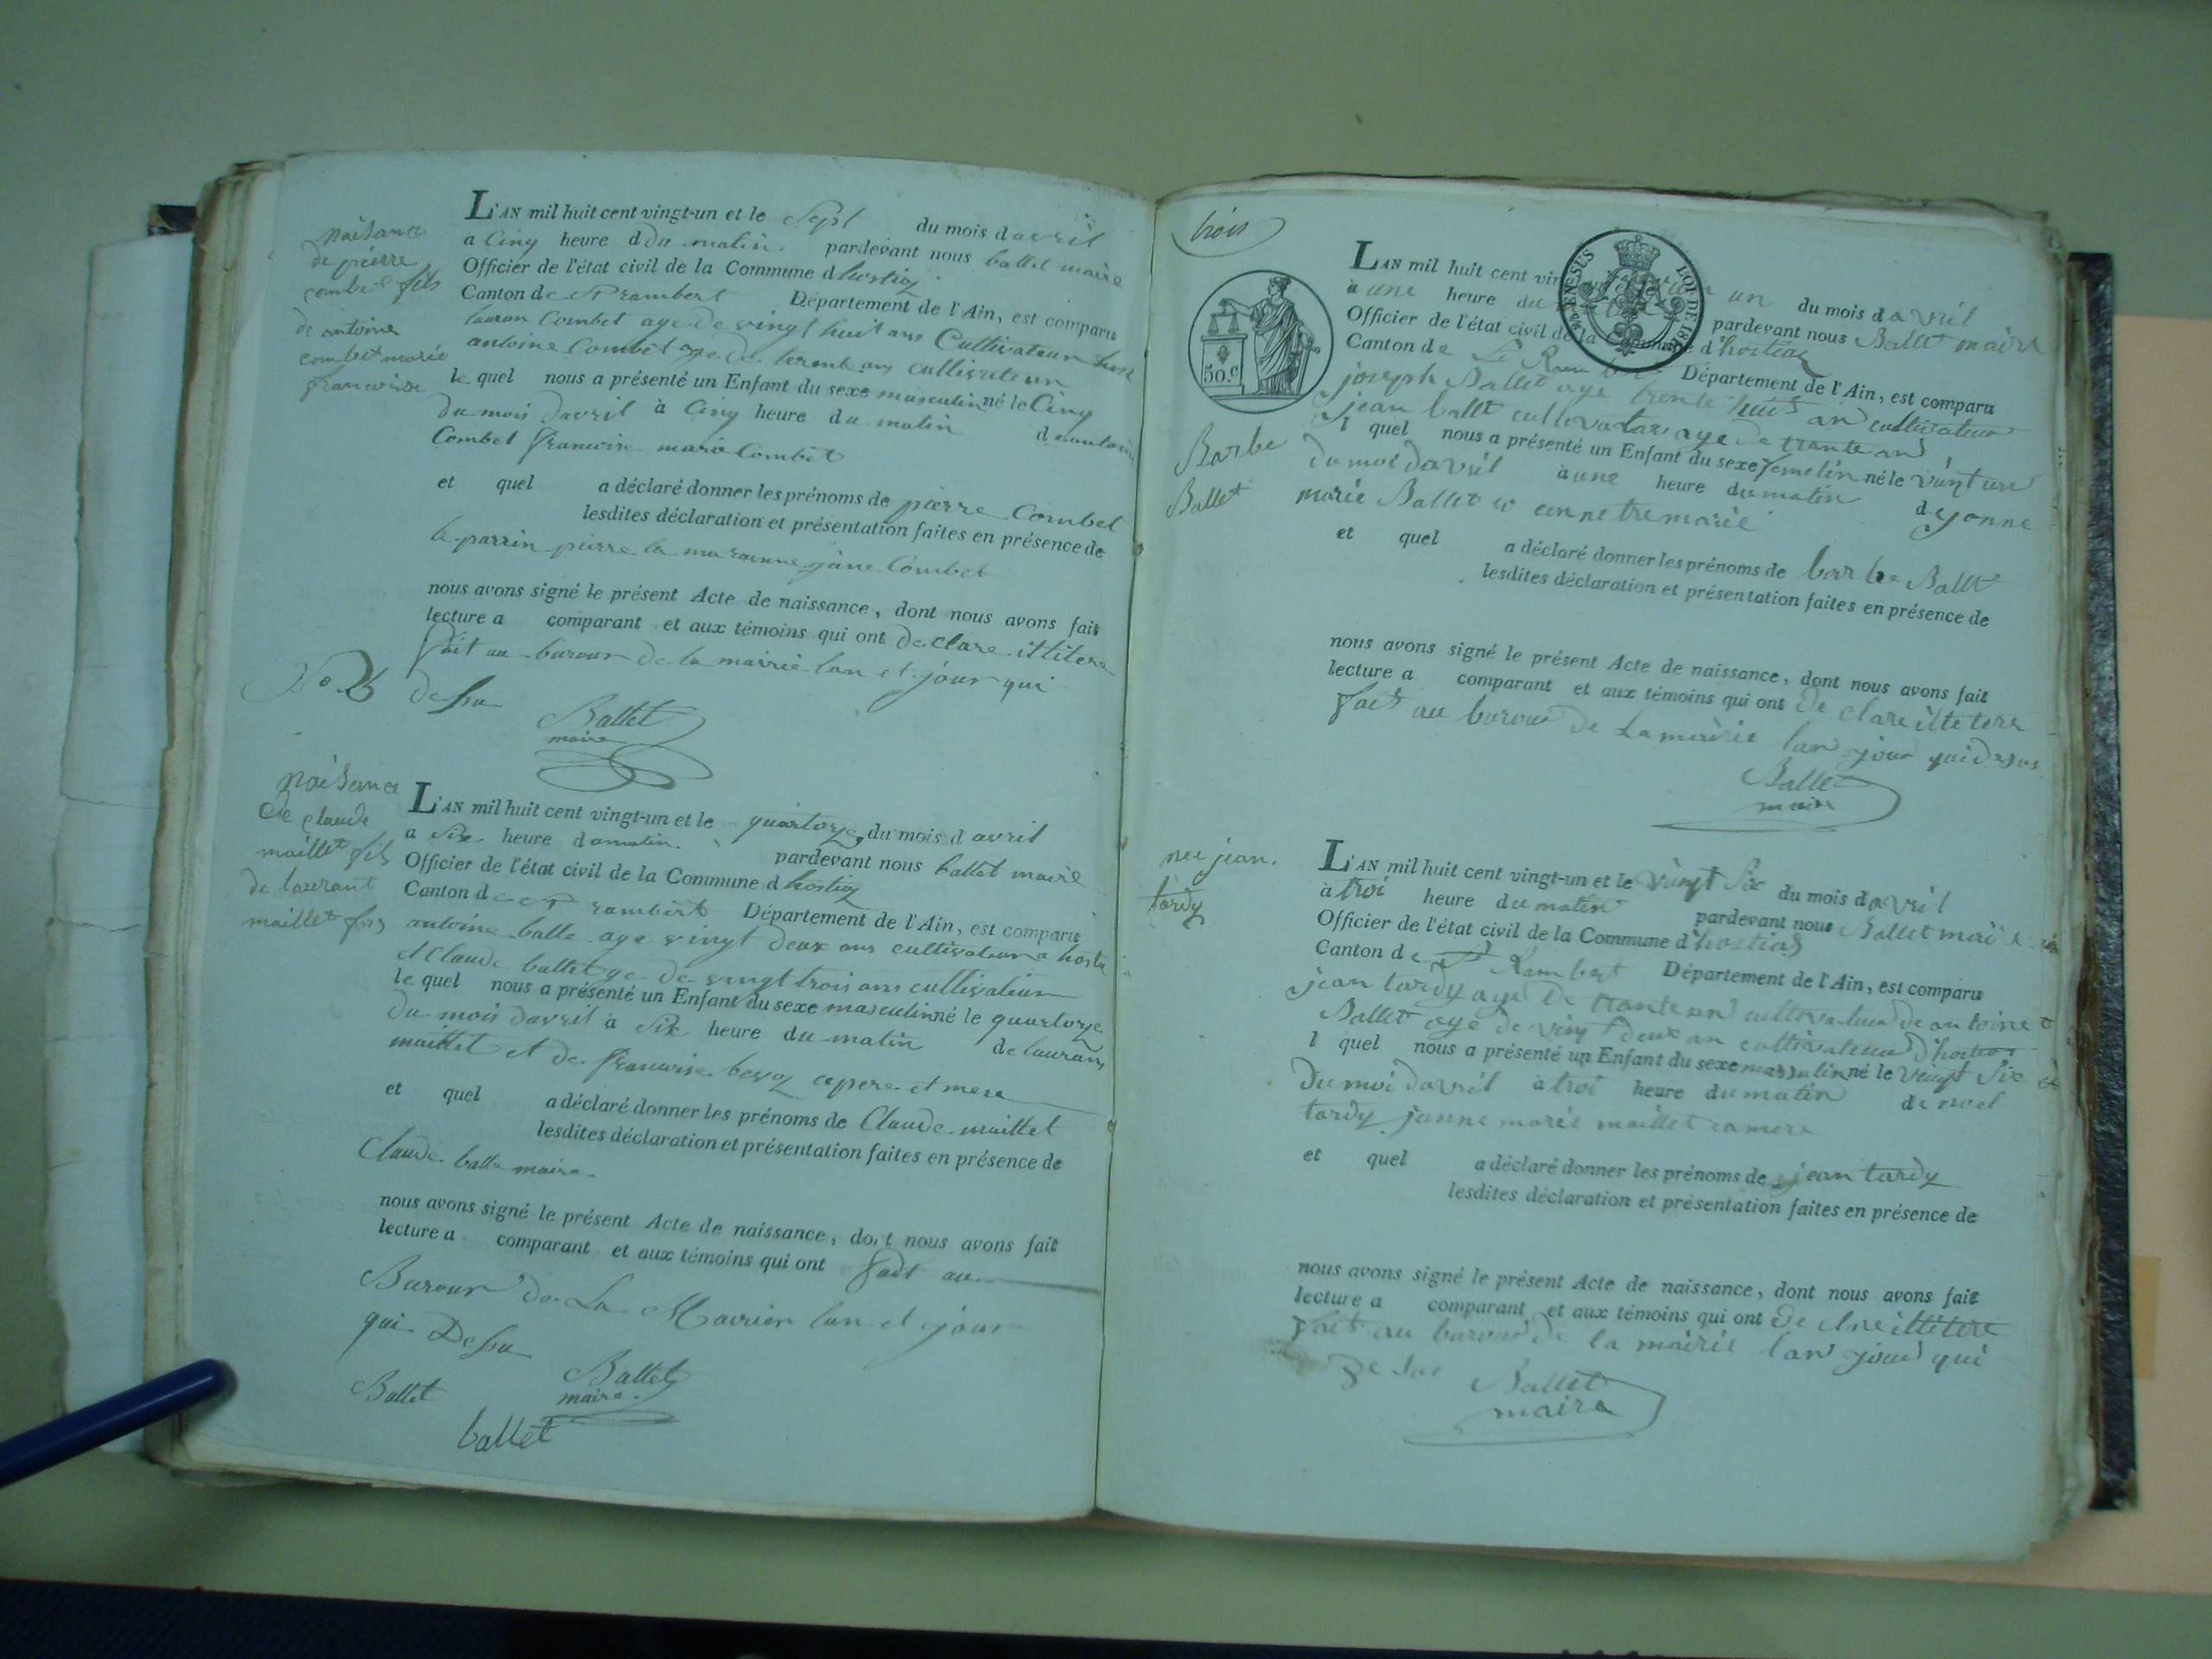 naisance
de pierre
combet fils
de antoine
combet marie
francoise
L'AN mil huit cent vingt-un et le Sept du mois d avril
a Cinq heure d du matin pardevant nous ballet maire
Officier de l'état civil de la Commune d hostiaz
Canton de St rambert Département de l'Ain, est comparu
Combet age de vingt huit ans Cultivateur
antoine Combet age de trente ans cultivateur
le quel nous a présenté un Enfant du sexe masculin né le Cinq
du mois davril à Cinq heure du matin
Combet marie Combet
et quel a déclaré donner les prénoms de pierre Combet
lesdites déclaration et présentation faites en présence de
le parrin pierre la Combet
nous avons signé le présent Acte de naissance, dont nous avons fait
lecture a comparant et aux témoins qui ont declare ittitere
fait au burour de la mairie lan et jour qui
dessu
Ballet
maire
naisance
de claude
maillet fils
de laurant
maillet
L'AN mil huit cent vingt-un et le quartorze du mois d avril
a Six heure dumatin pardevant nous ballet maire
Officier de l'état civil de la Commune d hostiaz
Canton de St rambert Département de l'Ain, est comparu
antoine balle age vingt deux ans cultivateur a
et Claude ballet ge de vingt trois ans cultivateur
le quel nous a présenté un Enfant du sexe masculin né le quartorze
du mois davril à Six heure du matin de lauran
maillet et de francoise ce pere et mere
et quel a déclaré donner les prénoms de Claude maillet
lesdites déclaration et présentation faites en présence de
Claude balle maire
nous avons signé le présent Acte de naissance, dont nous avons fait
lecture a comparant et aux témoins qui ont fait au
Burour de La Mairier lan et jour
qui Dessu
Ballet Ballet
maire
ballet
trois
50.c
LOI DE
L'AN mil huit cent un du mois d avril
à une heure du pardevant nous Ballet maire
Officier de l'état civil de la Commune d'hostiaz
Canton de Département de l'Ain, est comparu
joseph Ballet age trente huit an cultivateur
jean ballt age de trante an
l quel nous a présenté un Enfant du sexe femelin né le vingt un
du moi davril à une heure du matin de jonne
marie Ballet
Barbe
Ballet
et quel a déclaré donner les prénoms de barbe Ballt
lesdites déclaration et présentation faites en présence de
nous avons signé le présent Acte de naissance, dont nous avons fait
lecture a comparant et aux témoins qui ont de clare
fait au burour de La mairie lan jour quidesus
Balle
maire
nee jean
tardy
L'AN mil huit cent vingt-un et le vingt Six du mois d avril
à troi heure du matin pardevant nous Ballet maire
Officier de l'état civil de la Commune d'hostiaz
Canton de St Rambert Département de l'Ain, est comparu
jean tardy age de trante an cultivateur de antoine
Ballet age de vingt deux an cultivateur d'hostiaz
l quel nous a présenté un Enfant du sexe massulin né le vingt Six
du moi davril à troi heure du matin de noel
tardy janne marie maillet
et quel a déclaré donner les prénoms de jean tardy
lesdites déclaration et présentation faites en présence de
nous avons signé le présent Acte de naissance, dont nous avons fait
lecture a comparant et aux témoins qui ont de
fait au burour de la mairie lan jour qui
de sus
Ballet
maire